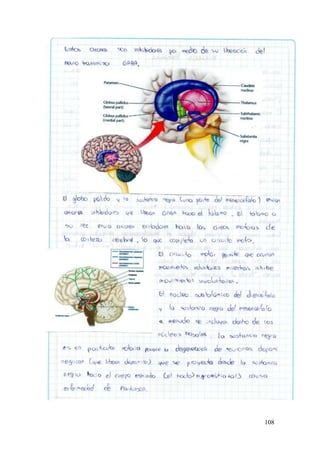 Estos axones son inhibidores por medio de su liberación del
neurotransmisor GABA.
Putamen
Globus pallidus
(lateral part)
Globus pallidus
(medial part)
Caudate
nucleus
Thalamus
Subthalamic
nucleus
Substantia
nigra
El globo pálido y la sustancia negra (una parte del mesencéfalo) envían
axones inhibidores que liberan GABA hacia el tálamo. El tálamo a
su vez envía axones excitadores hacia las áreas motoras de
la corteza cerebral, lo que completa un circuito motor.
El circuito motor permite que ocurran
movimientos voluntarios mientras inhibe
movimientos involuntarios.
El núcleo subtalámico del diencéfalo
y la sustancia negra del mesencéfalo
a menudo se incluyen dentro de los
núcleos basales. La sustancia negra
es en particular
la degeneración de neuronas
(que liberan dopamina) que se proyecta desde la sustancia
negra hacia el cuerpo estriado (el haz nigroestriatal) causa
enfermedad de Parkinson.
108